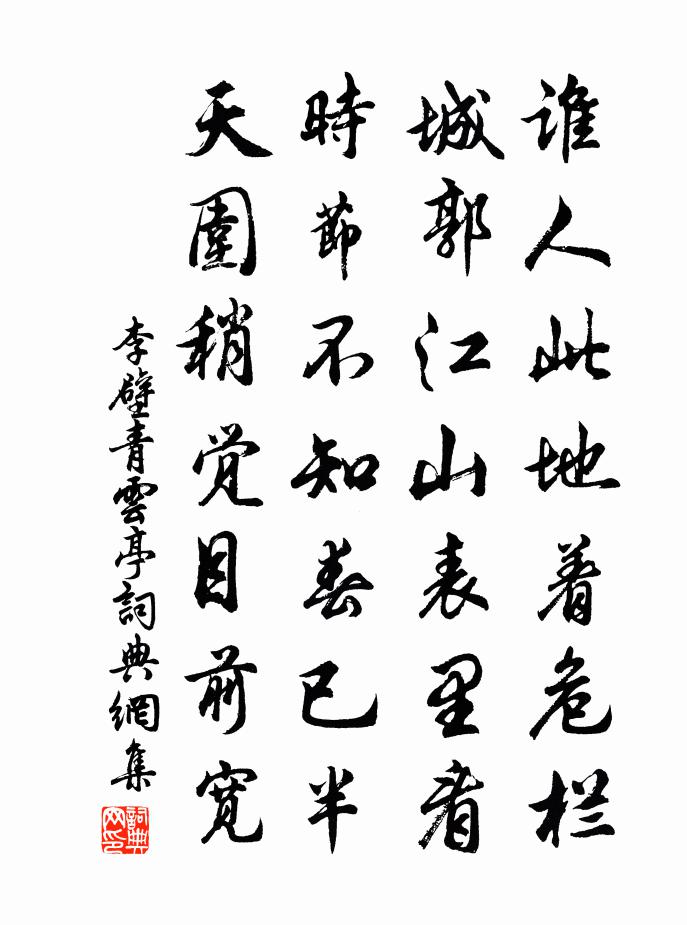 谁人此地着危栏
城郭江山表里看
時節不知春已半
天圍稍觉目前宽
李壁青雲亭詞典網集
詞典
网印